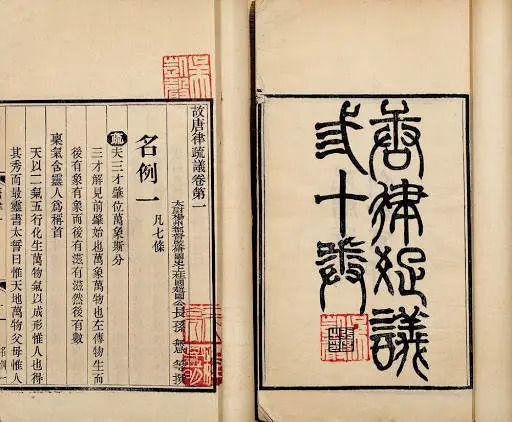 唐律疏議
弎十卷
故唐律疏議卷第一
太尉揚州都督監修國史上柱國趙國公長孫無忌等撰
名例一 凡七條
疏夫三才肇位萬象斯分
三才解見前肇始也萬象萬物也左傳物生而
後有象有象而後有滋有滋然後有數
稟氣含靈人爲稱首
天以二氣五行化生萬物氣以成形惟人也得
其秀而最靈書太誓曰惟天地萬物父母惟人